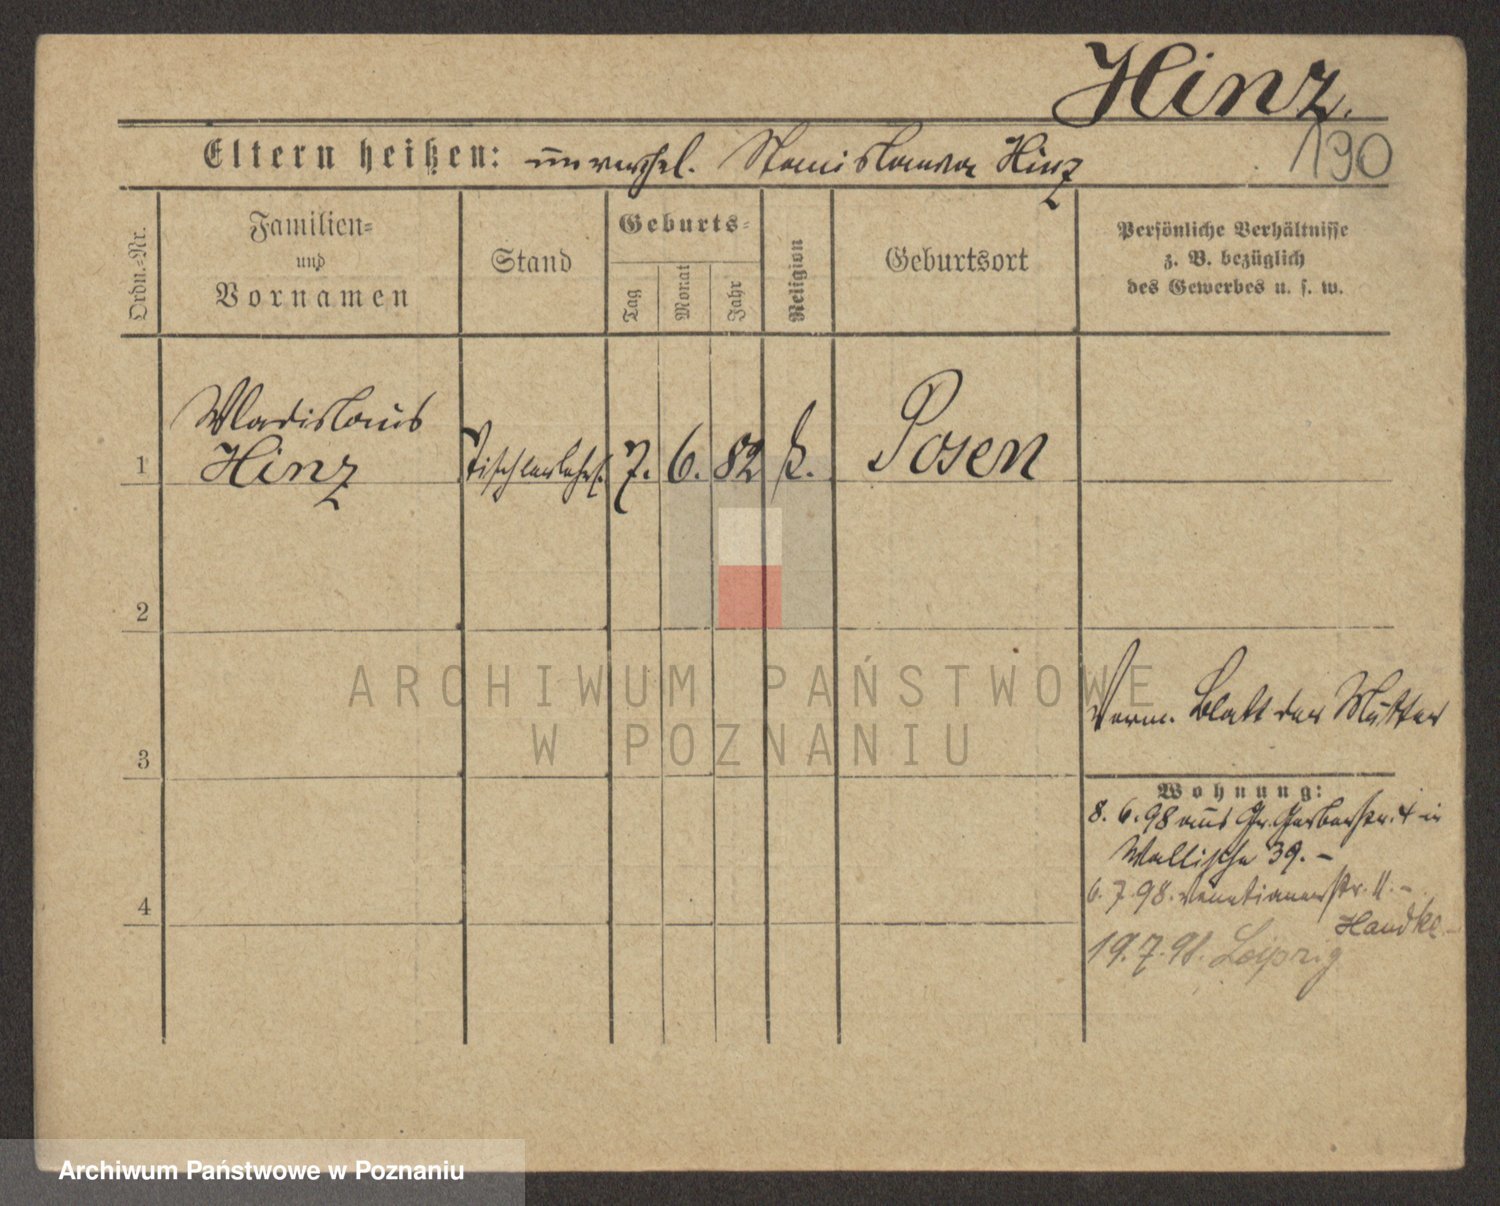 Hinz.
190
Eltern heißen: unverehel. Stanislawa Hinz
Ordn.-Nr.
Familien-
und
Vornamen
Stand
Geburts-
Tag
Monat
Jahr
Religion
Geburtsort
Persönliche Verhältnisse
z. B. bezüglich
des Gewerbes u. s. w.
Wladislaus
1 Hinz Tischlerlehrl. 7. 6. 82 k. Posen
2
ARCHIWUM PAŃSTWOWE
W POZNANIU
Verm. Blatt der Mutter
3
Wohnung:
8. 6. 98 aus Gr. Gerberstr. 4 in
Wallischei 39. –
6. 7. 98. Venetianerstr. 11. –
4
Handke
19. 7. 98. Leipzig
Archiwum Państwowe w Poznaniu